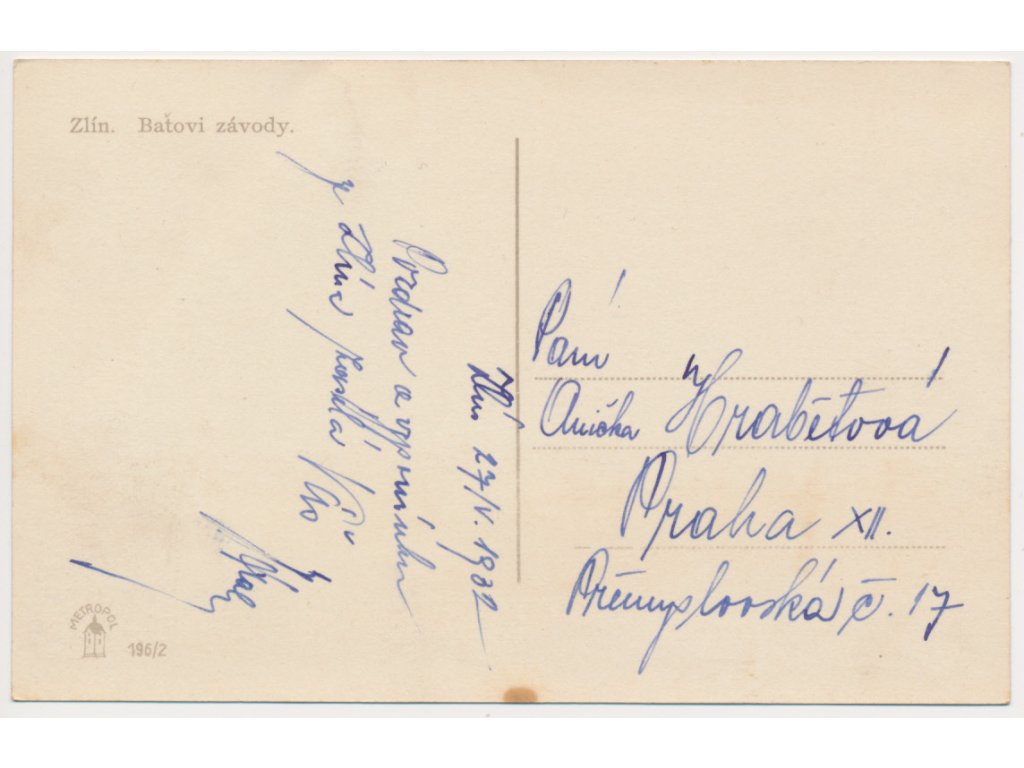 Zlín. Baťovi závody.
Zlín 27/V. 1932
Pozdrav a vzpomínku
ze Zlína zasílá Vám
Paní
Anička Hrabětová
Praha XII.
Přemyslovská č. 17
METROPOL
196/2